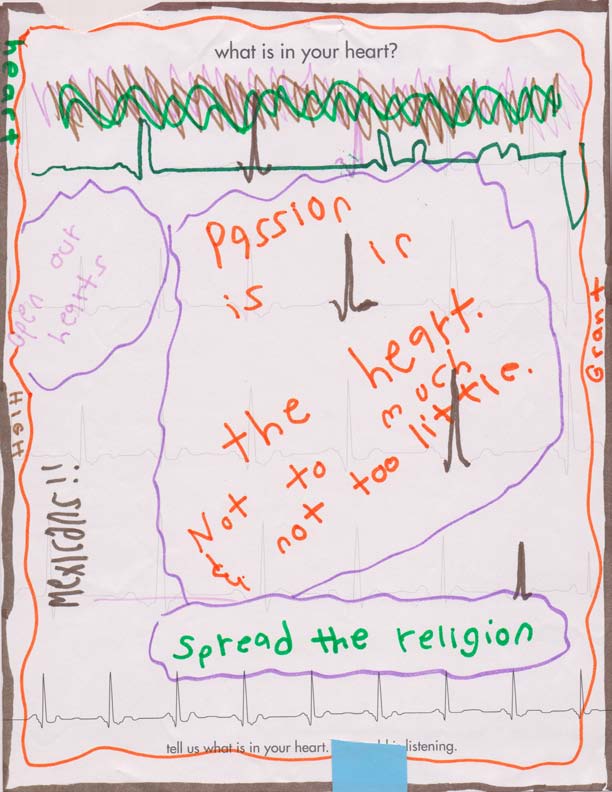 what is in your heart?
heart
open our
hearts
passion
is in
the heart.
Not to much
& not too little.
Grant
HIGH
Mexicans!!
Spread the religion
tell us what is in your heart. listening.